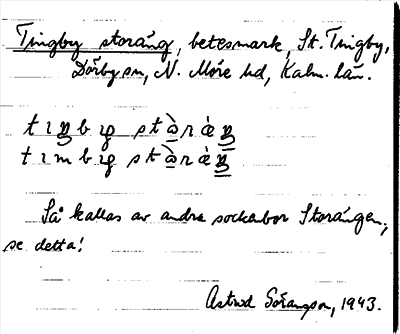 Tingby storäng, betesmark, St. Tingby,
Dörby sn, N. Möre hd, Kalm. län.
Så kallas av andra sockenbor Storängen,
se detta!
Astrid 1943.